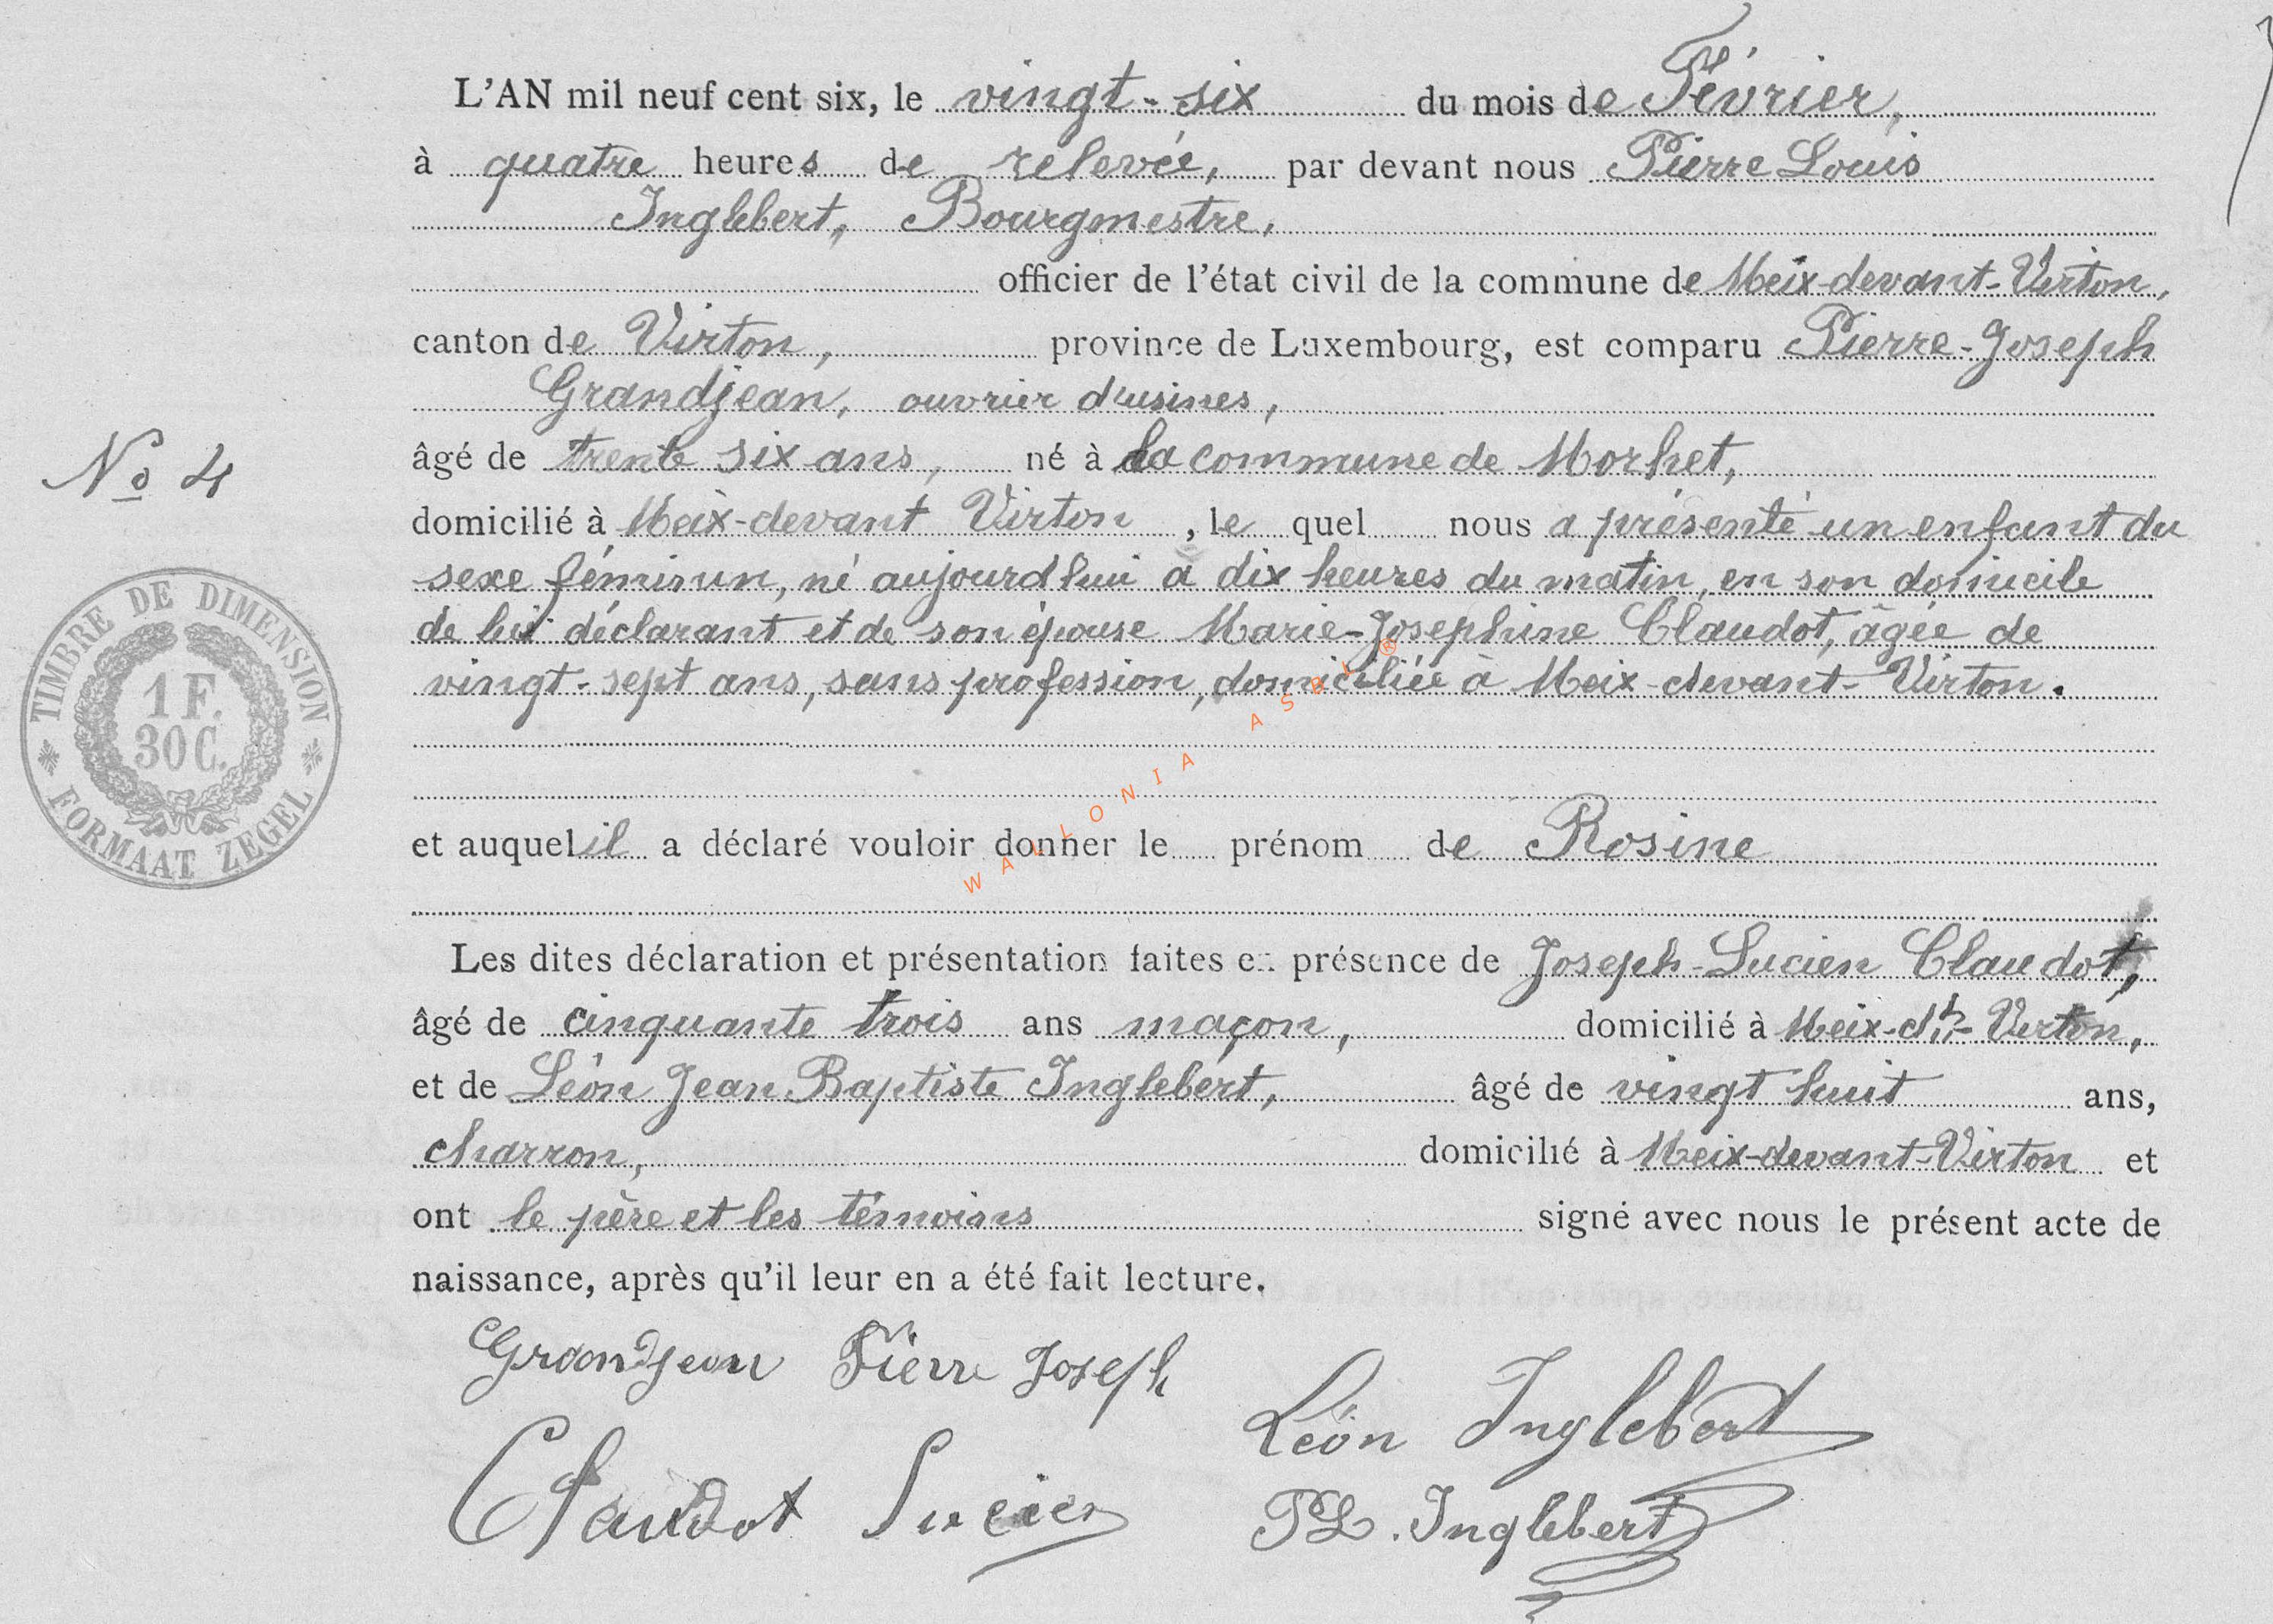 L'AN mil neuf cent six, le vingt-six du mois de Février,
à quatre heures de relevée, par devant nous Pierre Louis
Inglebert, Bourgmestre,
officier de l'état civil de la commune de Meix-devant-Virton,
canton de Virton, province de Luxembourg, est comparu Pierre-Joseph
Grandjean, ouvrier d'usines,
âgé de trente six ans, né à la commune de Morhet,
No 4
domicilié à Meix-devant Virton, le quel nous a présenté un enfant du
sexe féminin, né aujourd'hui à dix heures du matin, en son domicile
de lui déclarant et de son épouse Marie-Josephine Claudot, âgée de
vingt-sept ans, sans profession, domiciliée à Meix-devant-Virton.
TIMBRE DE DIMENSION
1 F.
30 C.
FORMAAT ZEGEL
WALLONIA ASBL ®
et auquel il a déclaré vouloir donner le prénom de Rosine
Les dites déclaration et présentation faites en présence de Joseph-Lucien Claudot,
âgé de cinquante trois ans maçon, domicilié à Meix-dt-Virton,
et de Léon Jean Baptiste Inglebert, âgé de vingt huit ans,
charron, domicilié à Meix-devant-Virton et
ont le père et les témoins signé avec nous le présent acte de
naissance, après qu'il leur en a été fait lecture.
Grandjean Pierre Joseph
Léon Inglebert
Claudot Lucien
PL. Inglebert